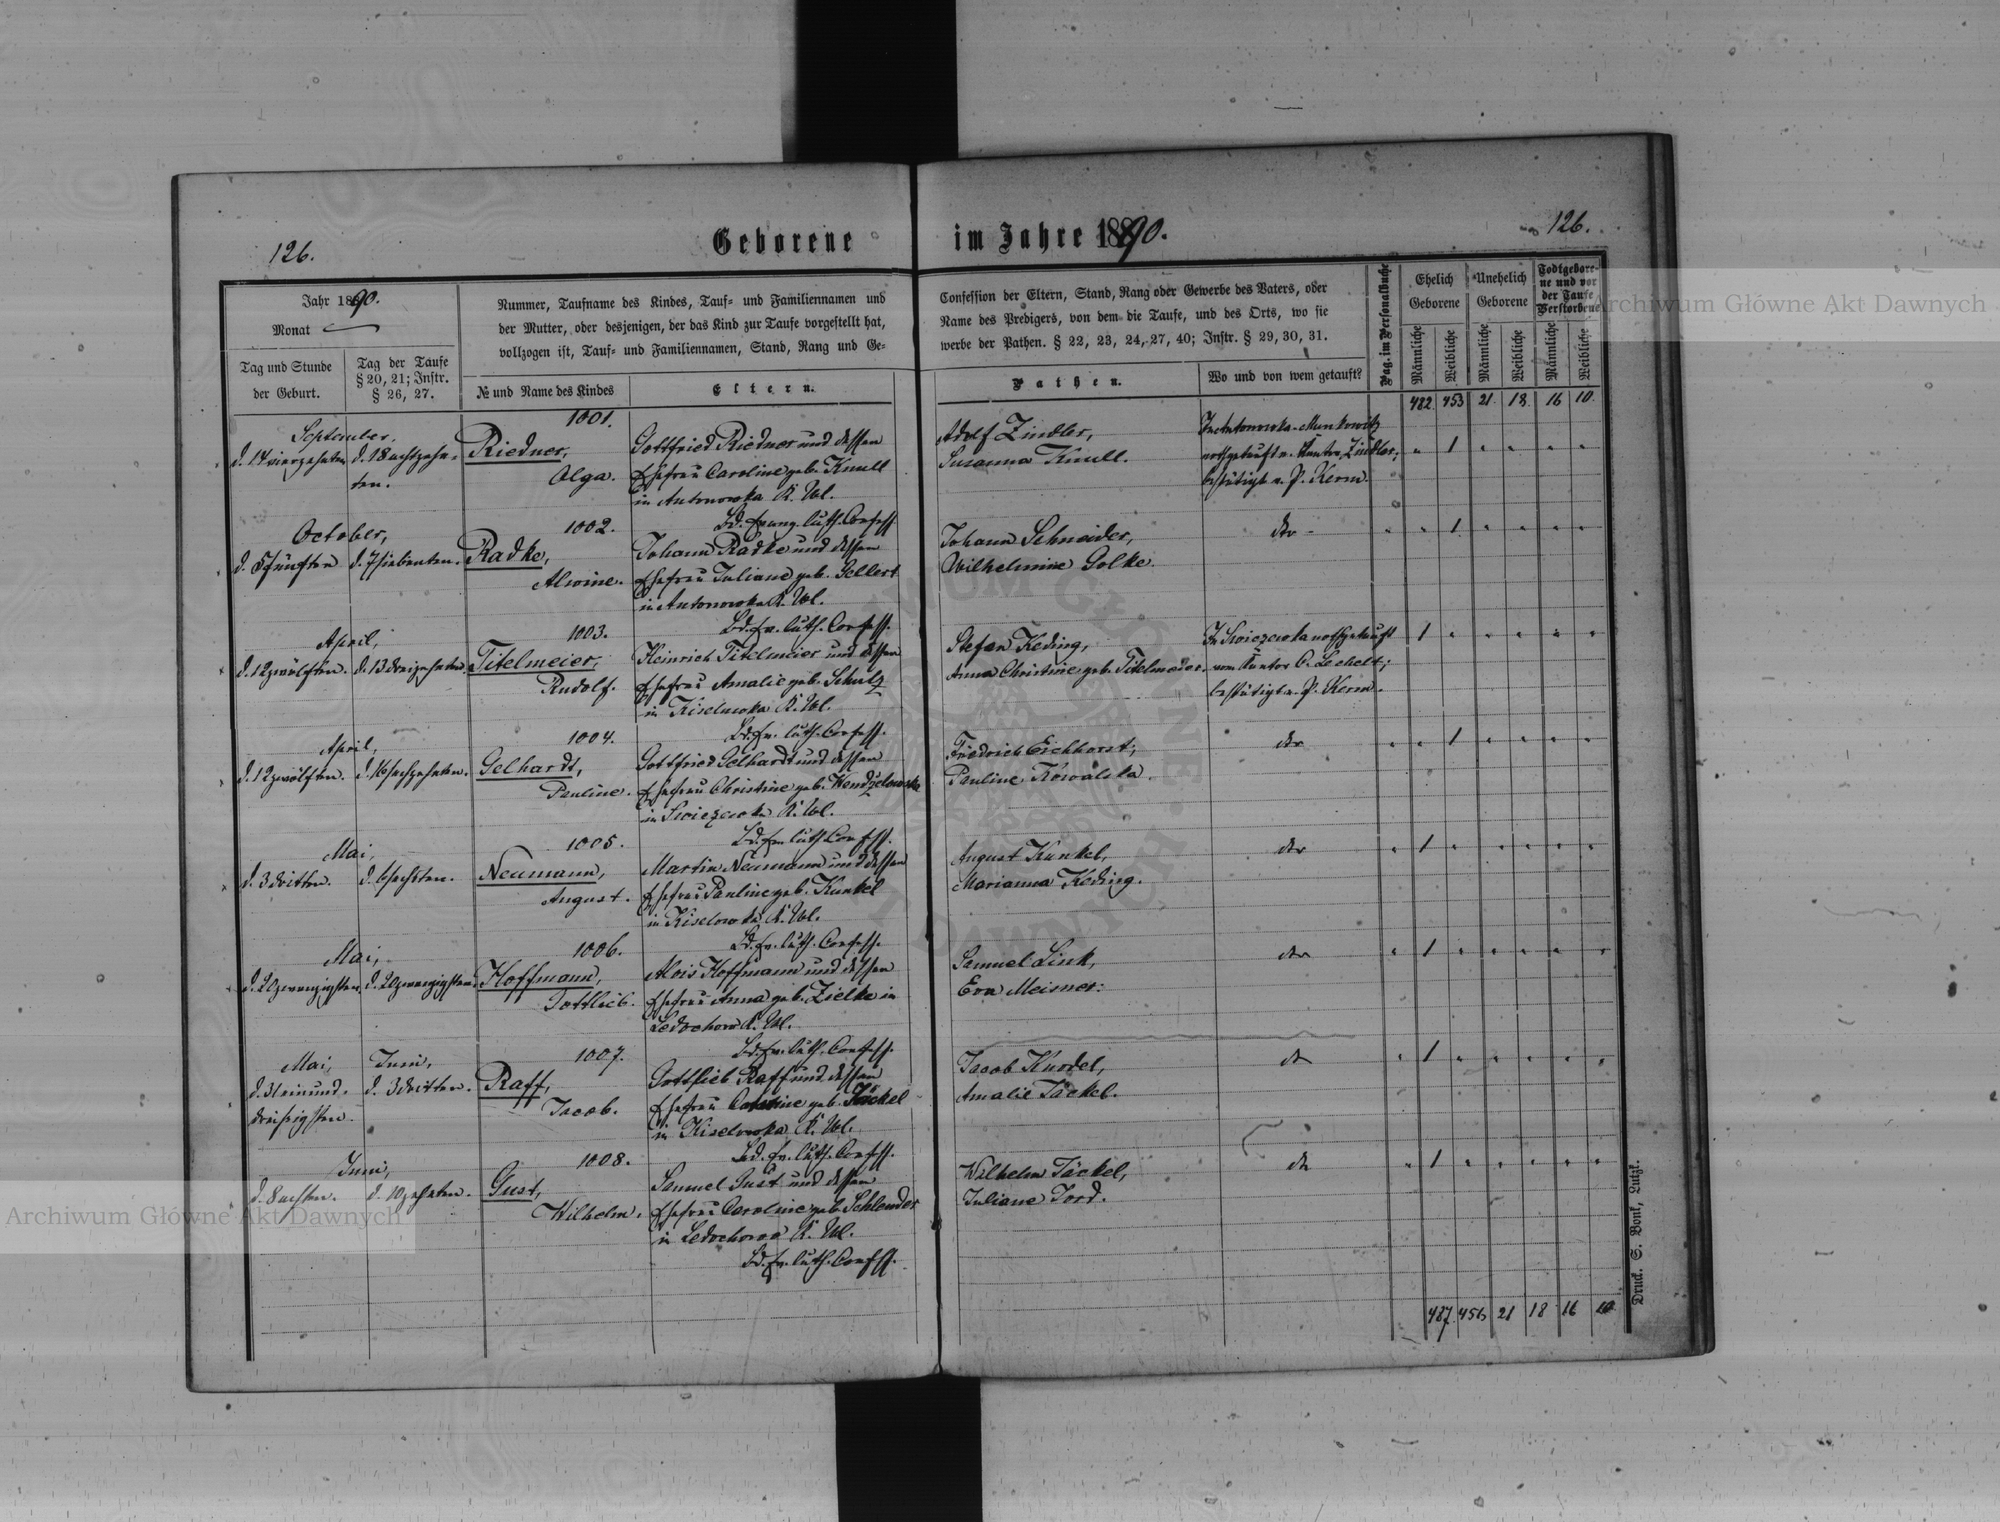 126.
Geborene
im Jahre 1890.
126.
Jahr 1890.
Monat
Tag und Stunde
der Geburt.
Tag der Taufe
§ 20, 21; Instr.
§ 26, 27.
Nummer, Taufname des Kindes, Tauf- und Familiennamen und
der Mutter, oder desjenigen, der das Kind zur Taufe vorgestellt hat,
vollzogen ist, Tauf- und Familiennamen, Stand, Rang und Ge-
№ und Name des Kindes
Eltern.
Confession der Eltern, Stand, Rang oder Gewerbe des Vaters, oder
Name des Predigers, von dem die Taufe, und des Orts, wo sie
werbe der Pathen. § 22, 23, 24, 27, 40; Instr. § 29, 30, 31.
Pathen.
Wo und von wem getauft?
Pag. im Personalbuche
Ehelich
Geborene
Unehelich
Geborene
Todtgebore-
ne und vor
der Taufe
Verstorbene
Männliche
Weibliche
Männliche
Weibliche
Männliche
Weibliche
482 453 21 18 16 10
September,
d. 14 vierzehnten
d. 18 achtzehn-
ten.
1001.
Riedner,
Olga.
Gottfried Riedner und dessen
Ehefrau Caroline geb. Knull
in Antonowka K. Wl.
Bd. Evang. luth. Confess.
Adolf Zindler,
Susanna Knull.
In Antonowka-Munkowitz
nothgetauft v. Kantor Zindler;
bestätigt v. P. Kerm.
1
October,
d. 5 fünften
d. 7 siebenten.
1002.
Radke,
Alwine.
Johann Radke und dessen
Ehefrau Juliane geb. Sellert
in Antonowka K. Wl.
Bd. Ev. luth. Confess.
Johann Schneider,
Wilhelmine Golke.
dto
1
April,
d. 12 zwölften.
d. 13 dreizehnten.
1003.
Titelmeier,
Rudolf.
Heinrich Titelmeier und dessen
Ehefrau Amalie geb. Schulz
in Kiselowka K. Wl.
Bd. Ev. luth. Confess.
Stefan Keding,
Anna Christine geb. Titelmeier.
In nothgetauft
vom Kantor C. Lechelt;
bestätigt v. P. Kerm.
1
April,
d. 12 zwölften.
d. 16 sechzehnten.
1004.
Gelhardt,
Pauline.
Gottfried Gelhardt und dessen
Ehefrau Christine geb.
in K. Wl.
Bd. Ev. luth. Confess.
Friedrich Eichhorst,
Pauline Kowalska.
dto
1
Mai,
d. 3 dritten.
d. 6 sechsten.
1005.
Neumann,
August.
Martin Neumann und dessen
Ehefrau Pauline geb. Kunkel
in Kiselowka K. Wl.
Bd. Ev. luth. Confess.
August Kunkel,
Marianna Keding.
dto
1
Mai,
d. 20 zwanzigsten.
d. 20 zwanzigsten.
1006.
Hoffmann,
Gottlieb.
Alois Hoffmann und dessen
Ehefrau Anna geb. Zielke in
Ledochow K. Wl.
Bd. Ev. luth. Confess.
Samuel Link,
Eva Meisner.
dto
1
Mai,
d. 31 einund-
dreißigsten.
Juni,
d. 3 dritten.
1007.
Raff,
Jacob.
Gottlieb Raff und dessen
Ehefrau geb. Täckel
in Kiselowka K. Wl.
Bd. Ev. luth. Confess.
Jacob Knodel,
Amalie Täckel.
dto
1
Juni,
d. 8 achten.
d. 10 zehnten.
1008.
Gust,
Wilhelm.
Samuel Gust und dessen
Ehefrau Caroline geb. Schlender
in Ledochowa K. Wl.
Bd. Ev. luth. Confess.
Wilhelm Täckel,
Juliane Jord.
dto
1
487 456 21 18 16 10
Druck. S. Bonk, Lutzk.
Archiwum Główne Akt Dawnych
Archiwum Główne Akt Dawnych